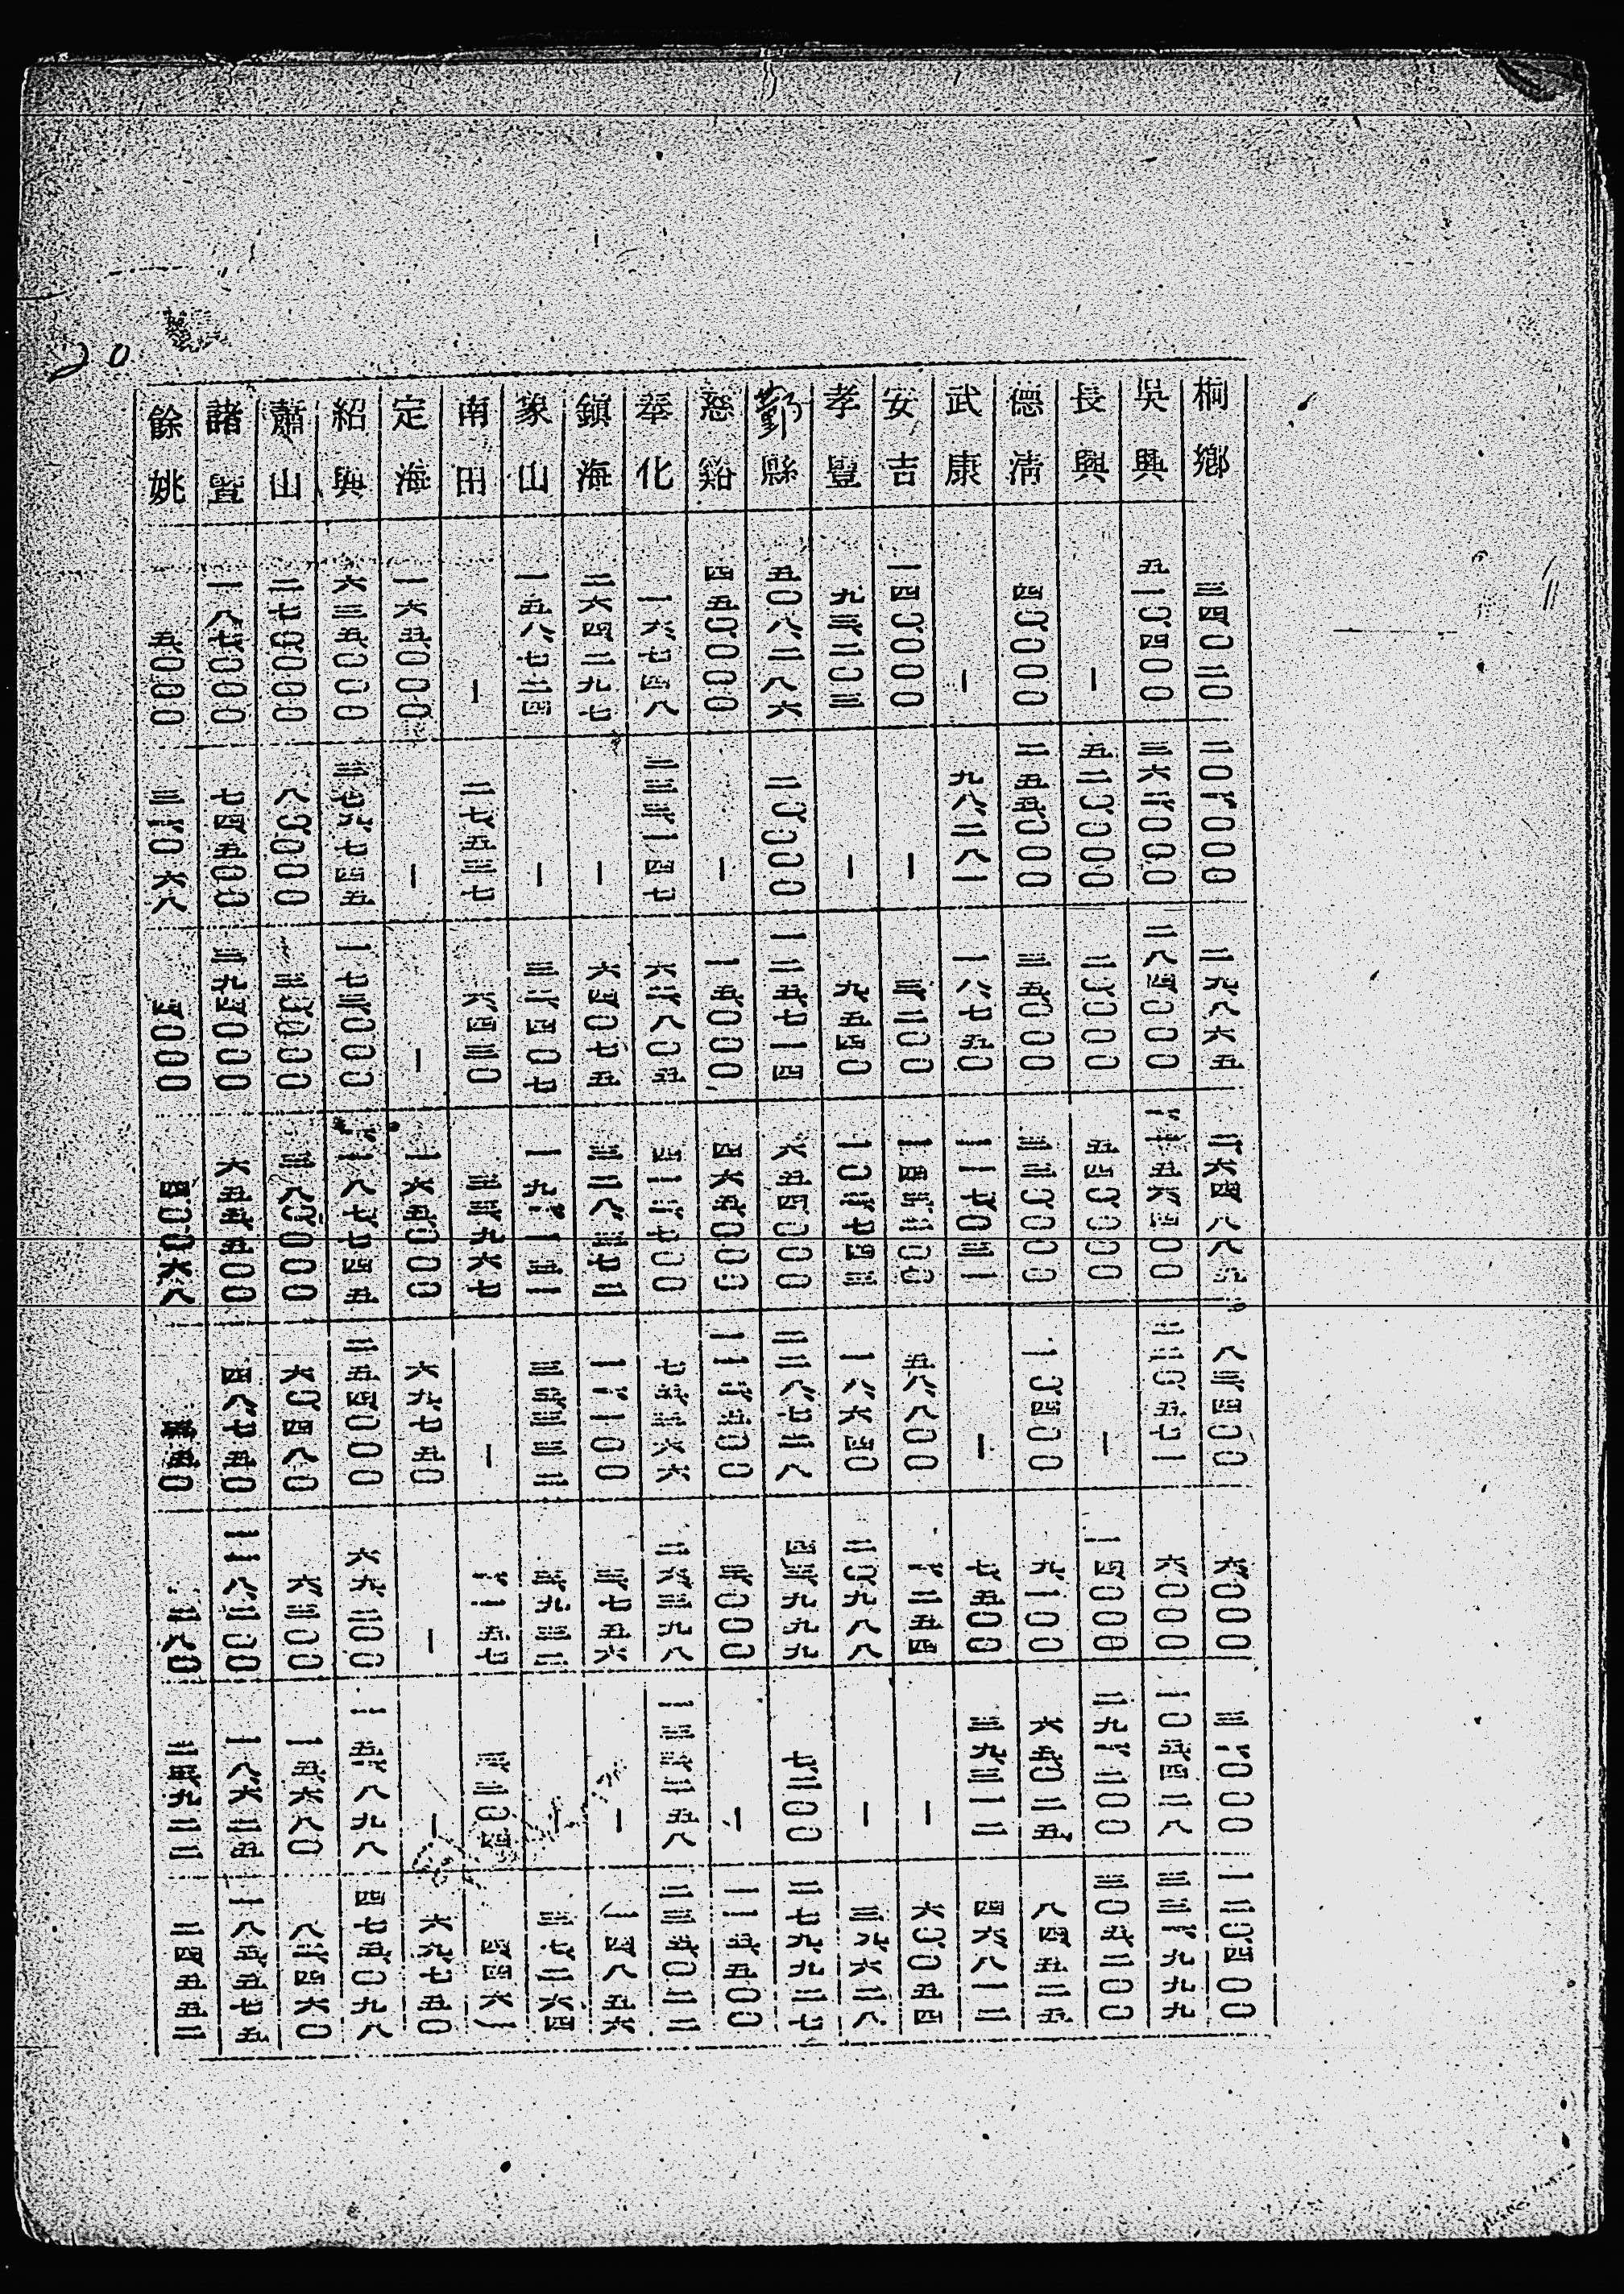 桐鄉 三四〇二〇 二〇一〇〇〇 二九八六五 二六四八八五 八三四〇〇 六〇〇〇 三一〇〇〇 一二〇四〇〇
吳興 五一〇四〇〇 三六二〇〇〇 二八四〇〇〇 一一五六四〇〇 二二〇五七一 六〇〇〇 一〇五四二八 三三一九九九
長興 — 五二〇〇〇〇 二〇〇〇〇 五四〇〇〇〇 — 一四〇〇〇 二九一二〇〇 三〇五二〇〇
德清 四〇〇〇〇 二五五〇〇〇 三五〇〇〇 三三〇〇〇〇 一〇四〇〇 九一〇〇 六五〇二五 八四五二五
武康 — 九八二八一 一八七五〇 一一七〇三一 — 七五〇〇 三九三一二 四六八一二
安吉 一四〇〇〇〇 — 三二〇〇 一四三二〇〇 五八八〇〇 一二五四 — 六〇〇五四
孝豐 九三二〇三 — 九五四〇 一〇二七四三 一八六四〇 二〇九八八 — 三九六二八
鄞縣 五〇八二八六 二〇〇〇〇 一二五七一四 六五四〇〇〇 二二八七二八 四三九九九 七二〇〇 二七九九二七
慈谿 四五〇〇〇〇 — 一五〇〇〇 四六五〇〇〇 一一二五〇〇 三〇〇〇 — 一一五五〇〇
奉化 一六七四八 三三三一四七 六二八〇五 四一二七〇〇 七五三六六 二六三九八 一三三二五八 二三五〇二二
鎮海 二六四二九七 — 六四〇七五 三二八三七二 一一一〇〇 三七五六 — 一四八五六
象山 一五八七二四 — 三二四〇七 一九一一三一 三三三三二 三九三二 — 三七二六四
南田 — 二七五三七 六四三〇 三三九六七 — 一一五七 三三〇四 四四六一
定海 一六五〇〇〇 — — 一六五〇〇〇 六九七五〇 — — 六九七五〇
紹興 六三五〇〇〇 三七九七四五 一七三〇〇〇 一一八七七四五 二五四〇〇〇 六九二〇〇 一五一八九八 四七五〇九八
蕭山 二七〇〇〇〇 八〇〇〇〇 三〇〇〇〇 三八〇〇〇〇 六〇四八〇 六三〇〇 一五六八〇 八二四六〇
諸暨 一八七〇〇〇 七四五〇〇 三九四〇〇〇 六五五五〇〇 四八七五〇 一一八二〇〇 一八六二五 一八五五七五
餘姚 五〇〇〇 三一〇六八 四〇〇〇 四〇〇六八 三五〇 二八〇 二三九二二 二四五五二
20